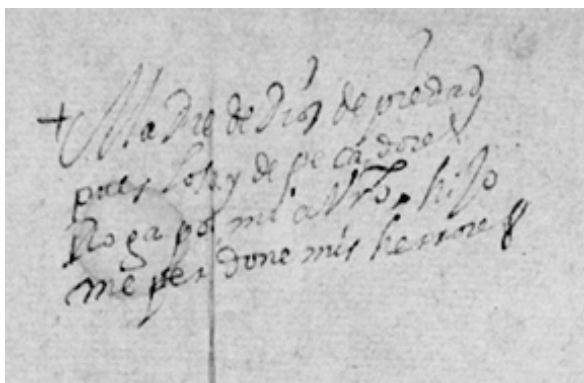 + Madre de Dios de piedad
pues lo soys de pecadores
Roga por mi a Vro hijo
me perdone mis herrores